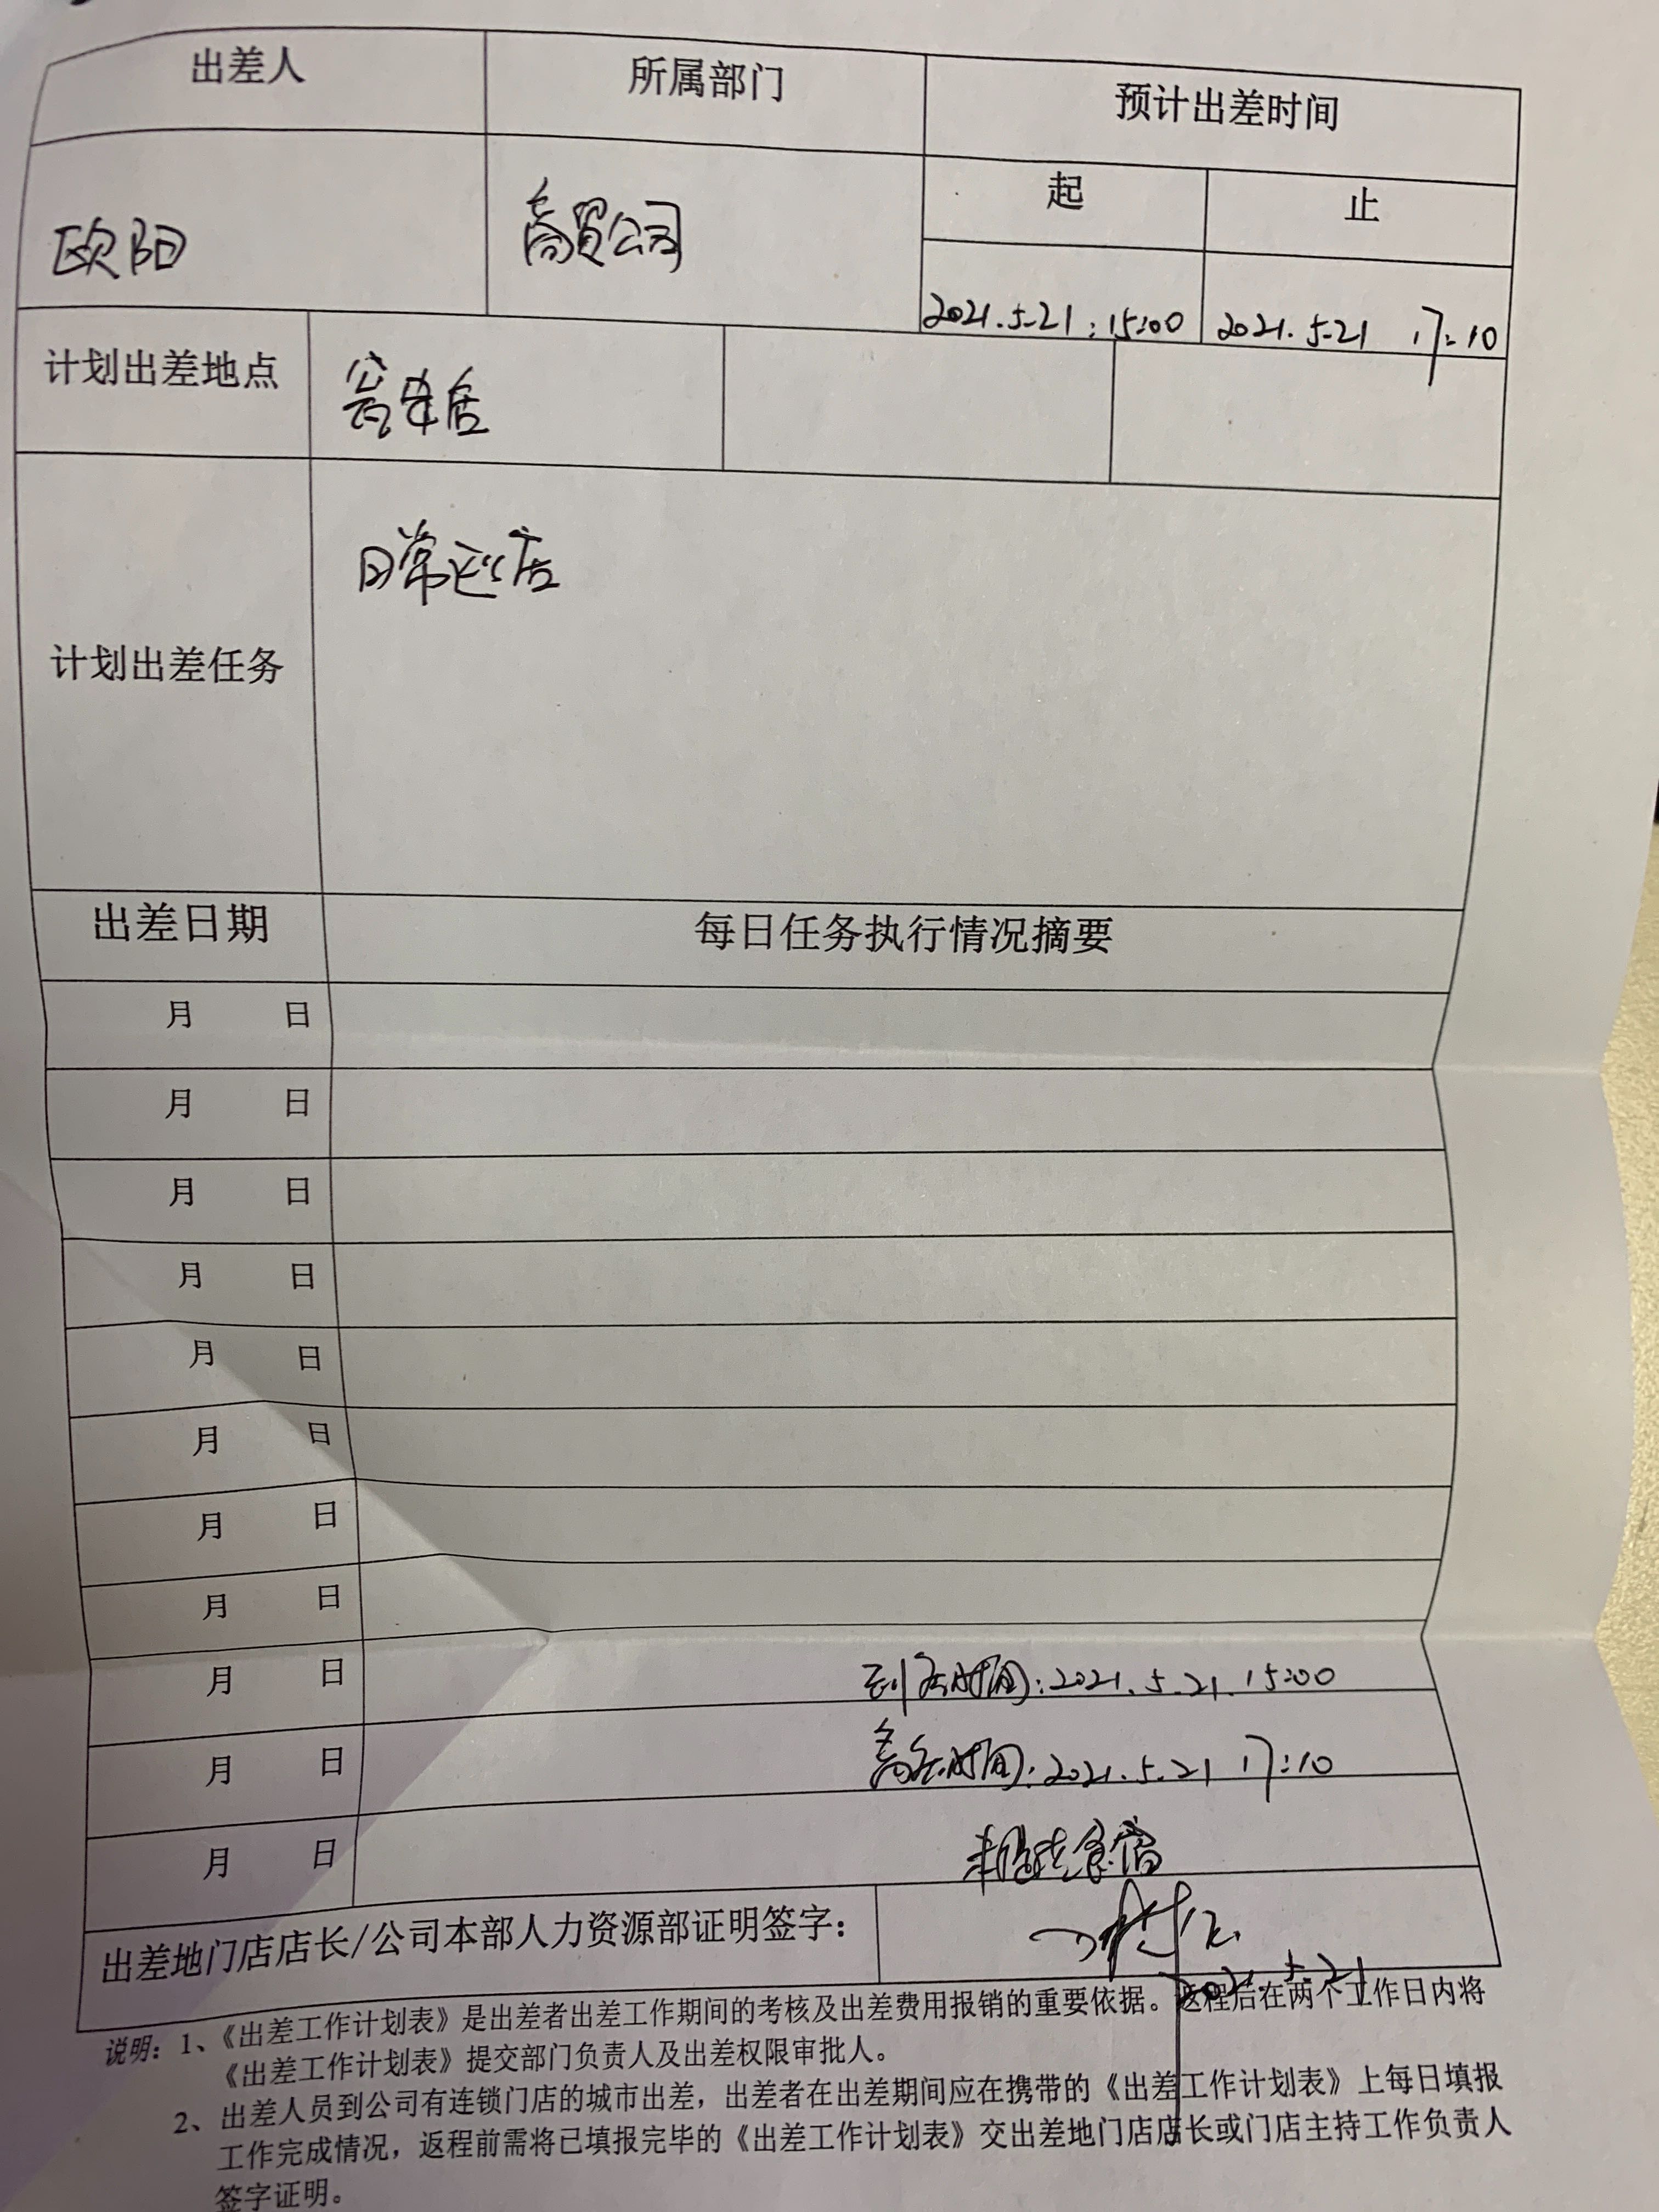 出差人 所属部门 预计出差时间
起 止
欧阳 商贸公司 2021.5.21:15:00 2021.5.21 17:10
计划出差地点
计划出差任务 日常巡店
出差日期 每日任务执行情况摘要
月 日
月 日
月 日
月 日
月 日
月 日
月 日
月 日
月 日 到店时间:2021.5.21.15:00
月 日 离店时间:2021.5.21 17:10
月 日 食宿
出差地门店店长/公司本部人力资源部证明签字:
2021.5.21
说明:1、《出差工作计划表》是出差者出差工作期间的考核及出差费用报销的重要依据。返程后在两个工作日内将
《出差工作计划表》提交部门负责人及出差权限审批人。
2、出差人员到公司有连锁门店的城市出差，出差者在出差期间应在携带的《出差工作计划表》上每日填报
工作完成情况，返程前需将已填报完毕的《出差工作计划表》交出差地门店店长或门店主持工作负责人
签字证明。